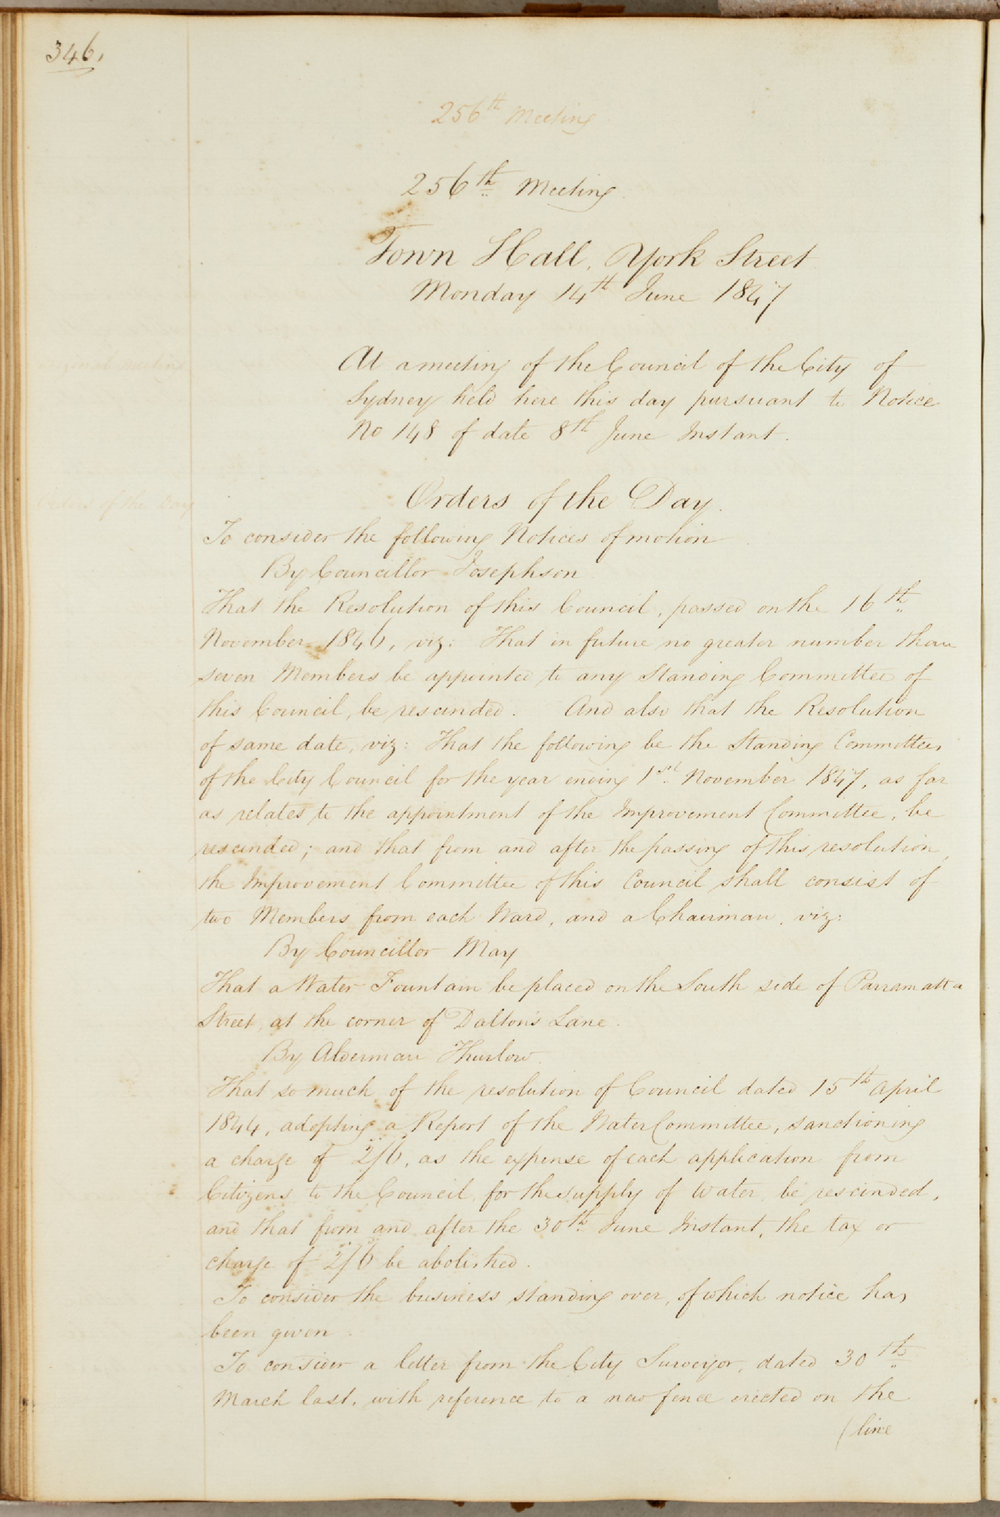 346.
256th Meeting
256th Meeting.
Town Hall, York Street
Monday 14th June 1847
At a meeting of the Council of the City of
Sydney held here this day pursuant to Notice
No 148 of date 8th June Instant.
Orders of the Day
Orders of the Day.
To consider the following Notices of motion
By Councillor Josephson
That the Resolution of this Council, passed on the 16th
November 1846, viz: That in future no greater number than
seven Members be appointed to any Standing Committee of
this Council, be rescinded. And also that the Resolution
of same date, viz: That the following be the Standing Committees
of the City Council for the year ending 1st November 1847, as far
as relates to the appointment of the Improvement Committee, be
rescinded; and that from and after the passing of this resolution,
the Improvement Committee of this Council shall consist of
two Members from each Ward, and a Chairman, viz:
By Councillor May
That a Water Fountain be placed on the South side of Parramatta
Street, at the corner of Dalton's Lane.
By Alderman Thurlow
That so much of the resolution of Council dated 15th April
1844, adopting a Report of the Water Committee, sanctioning
a charge of 2/6, as the expense of each application from
Citizens to the Council for the supply of Water be rescinded,
and that from and after the 30th June Instant, the tax or
charge of 2/6 be abolished.
To consider the business standing over, of which notice has
been given.
To consider a letter from the City Surveyor, dated 30th
March last, with reference to a new fence erected on the
(line